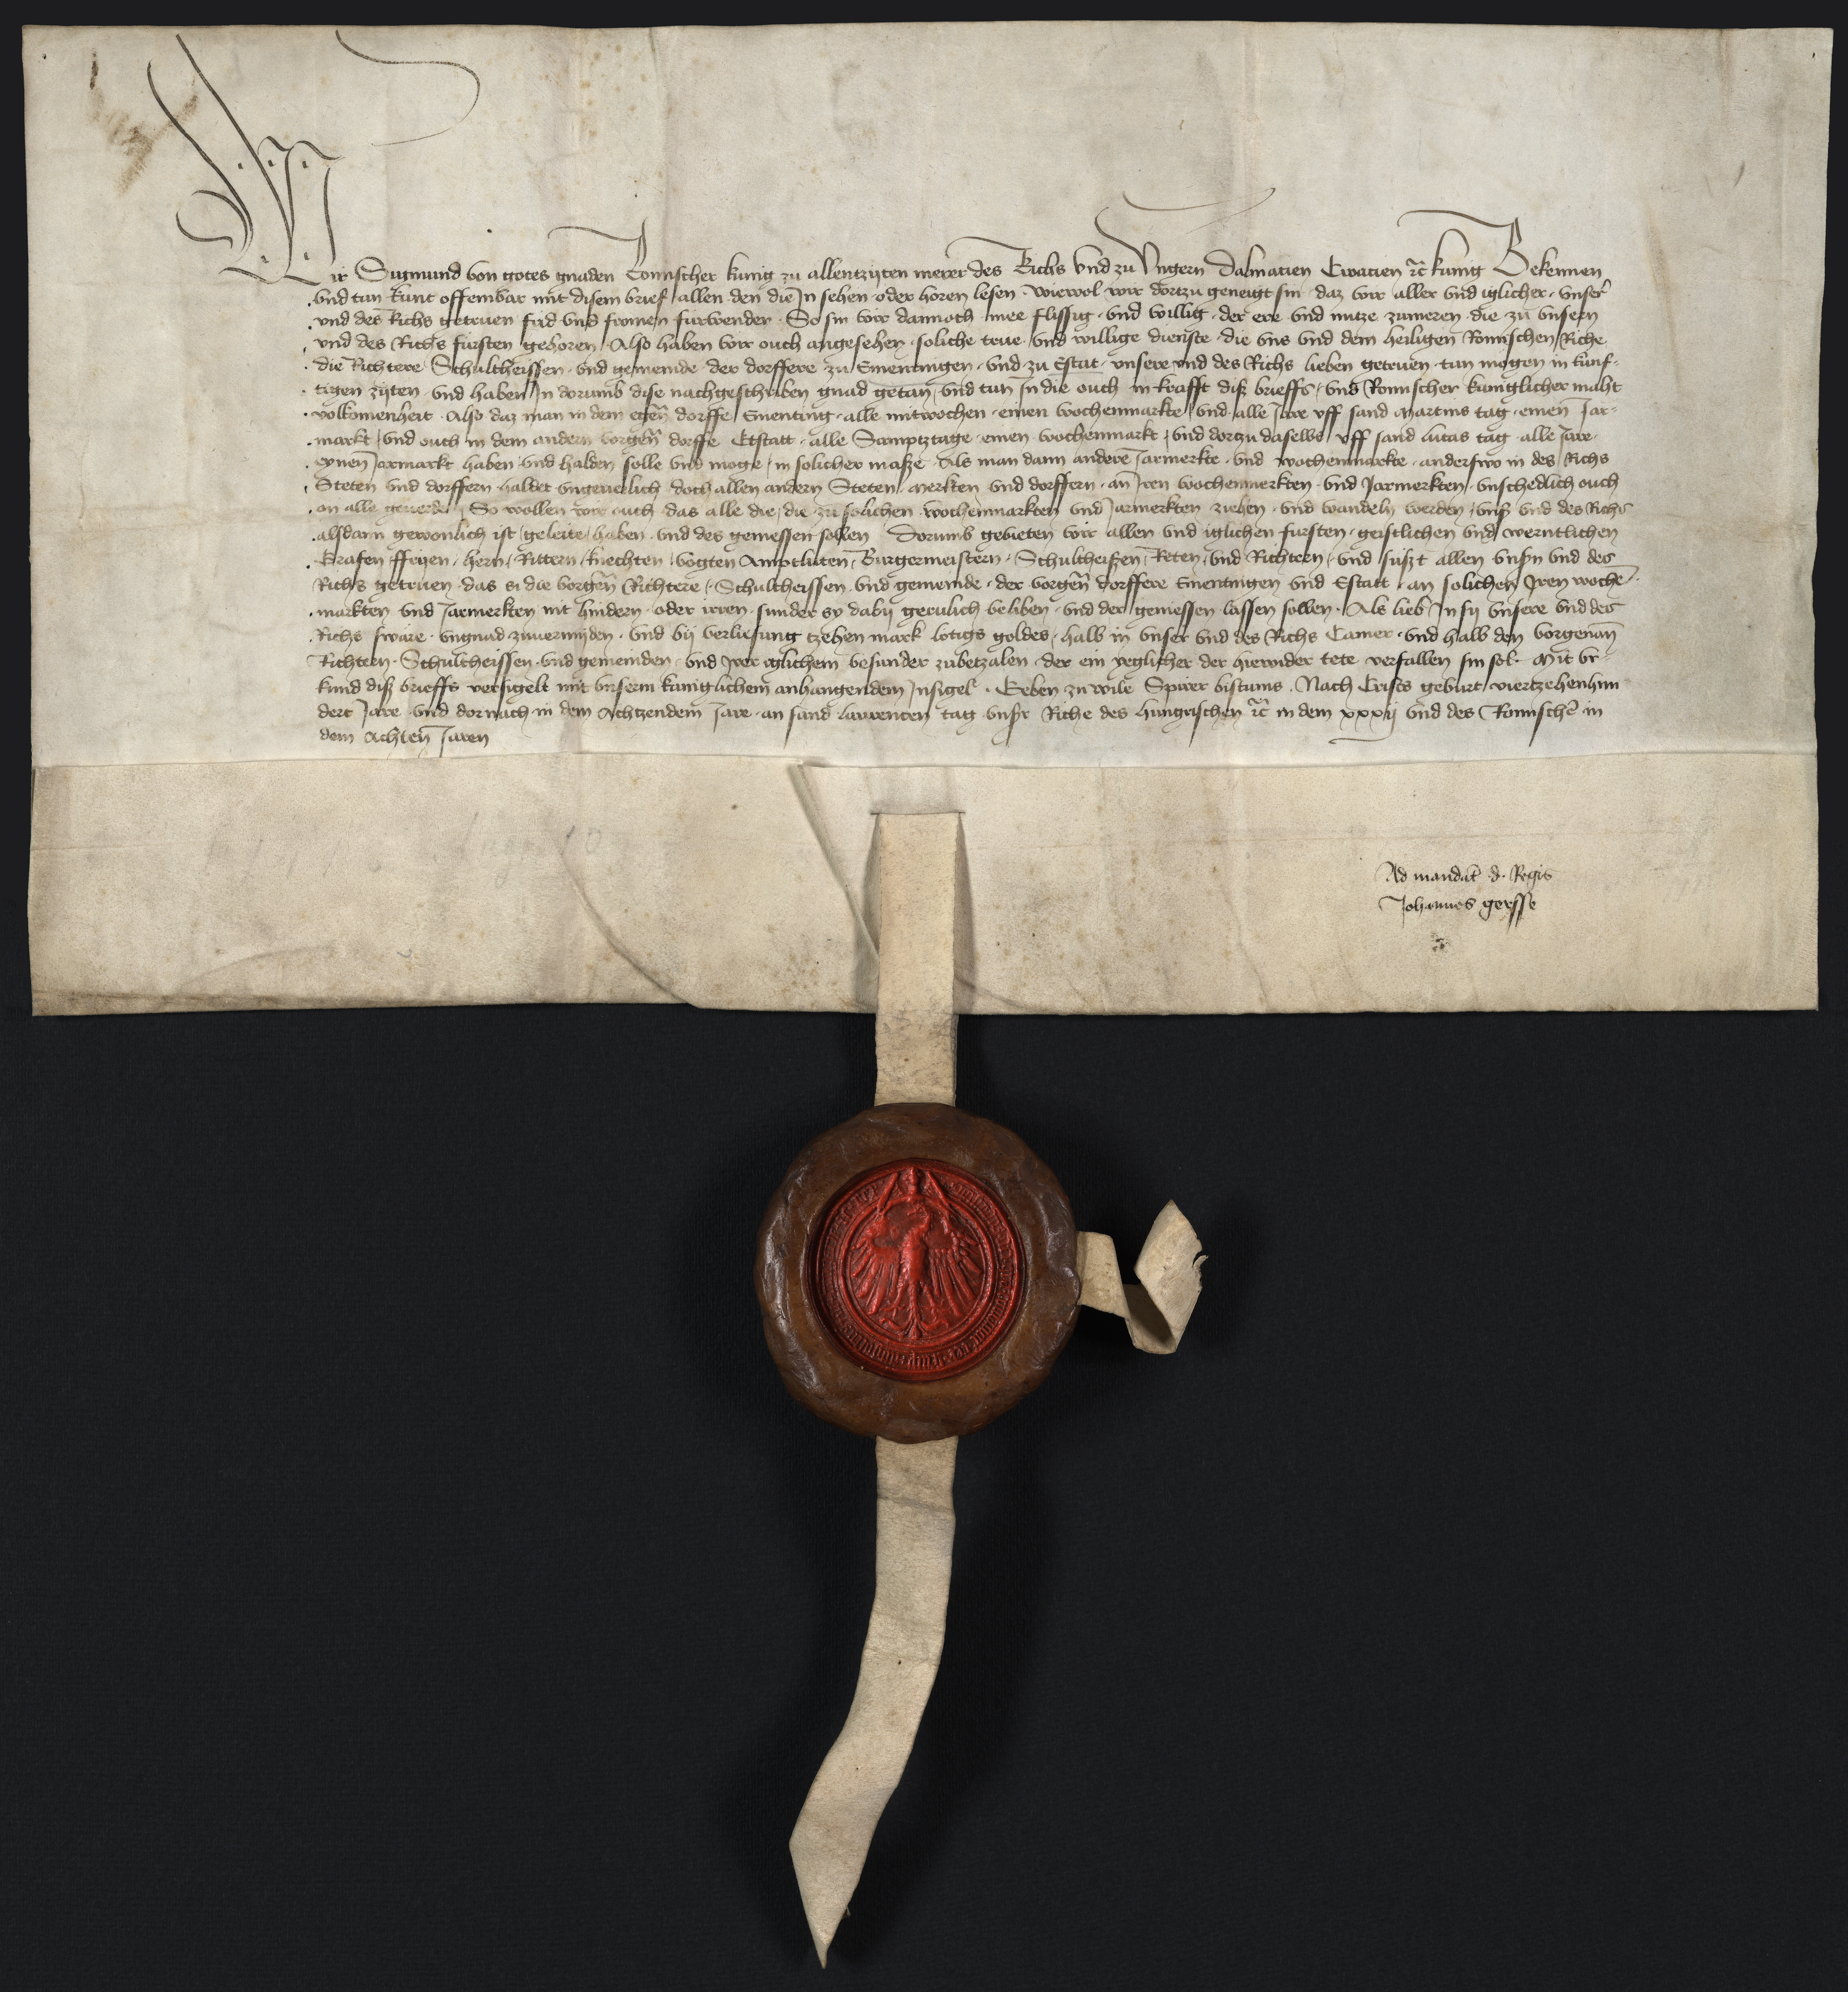 Wir Sigmund von gotes gnaden Romischer kunig zu allentzijten merer des Richs vnd zu Vngern Dalmatien Croatien etc kunig Bekennen
vnd tun kunt offembar mit disem brief allen den die In sehen oder horen lesen Wiewol wir dortzu geneigt sin daz wir aller vnd iglicher vnser
vnd des Richs getruen frid vnd fromen furwenden So sin wir dannoch mee flissig vnd willig der ere vnd nutze zumeren die zu vnsern
vnd des Richs fursten gehoren Also haben wir ouch angesehen soliche true vnd willige dienste die vns vnd dem heiligen Romischen Riche
die Richtere Schultheissen vnd gemeinde der dorffere zu Ementingen vnd zu Estat vnsere vnd des Richs lieben getruen tun mogen in kunf-
tigen zijten vnd haben In dorumb dise nachgeschriben gnad getan vnd tun In die ouch in krafft diß brieffs vnd Romischer kuniglicher maht
volkomenheit Also daz man in dem egen̄ dorffe Emeting alle mitwochen einen wochenmarkte vnd alle Jare vff sand Martins tag einen Jar-
markt vnd ouch in dem andern vorgen̄ dorffe Etstatt alle Samptztage einen wochenmarkt vnd dorzu daselbs vff sand lucas tag alle Jare
eynen Jarmarkt haben vnd halden solle vnd moge in solicher maße Als man dann andere Jarmerkte vnd wochenmarkte anderswo in des Richs
Steten vnd dorffern haldet vngeuerlich doch allen andern Steten merkten vnd dorffern an Iren wochenmerkten vnd Jarmerkten vnschedlich ouch
on alle geuerde So wollen wir ouch das alle die die zu solichen wochenmarkten vnd Jarmerkten ziehen vnd wandeln werden vnß vnd des Richs
alsdann gewonlich ist geleite haben vnd des geniessen sollen Dorumb gebieten wir allen vnd iglichen fursten geistlichen vnd werntlichen
Grafen ffryen hern Rittern knechten vogten Amptluten Burgermeistern Schultheißen Reten vnd Richtern vnd sußt allen vnsn̄ vnd des
Richs getruen das si die vorgen̄ Richtere Schultheissen vnd gemeinde der vorgen̄ dorffere Ementingen vnd Estatt an solichen Iren wochē-
markten vnd Jarmerkten nit hindern oder irren sunder sy dabij gerulich beliben vnd der geniessen lassen sollen Als lieb In sij vnsere vnd des
Richs sware vngnad zuuermijden vnd bij verliesung tzehen mark lotigs goldes halb in vnser vnd des Richs Camer vnd halb den vorgenan̄
Richtern Schultheissen vnd gemeinden vnd Irer iglichem besunder zubetzalen der ein yeglicher der hierwider tete verfallen sin sol Mit vr-
kund diß brieffs versigelt mit vnserm kuniglichem anhangendem Insigel Geben zu wile Spirer bistums Nach Crists geburt viertzehenhun
dert Jare vnd dornach in dem Achtzendem Jare an sand laurenten tag vnsr Riche des hungrischen etc in dem xxxij vnd des Romischē in
dem Achten̄ Jaren
Ad mandat̄ d. Regis
Johannes gersse